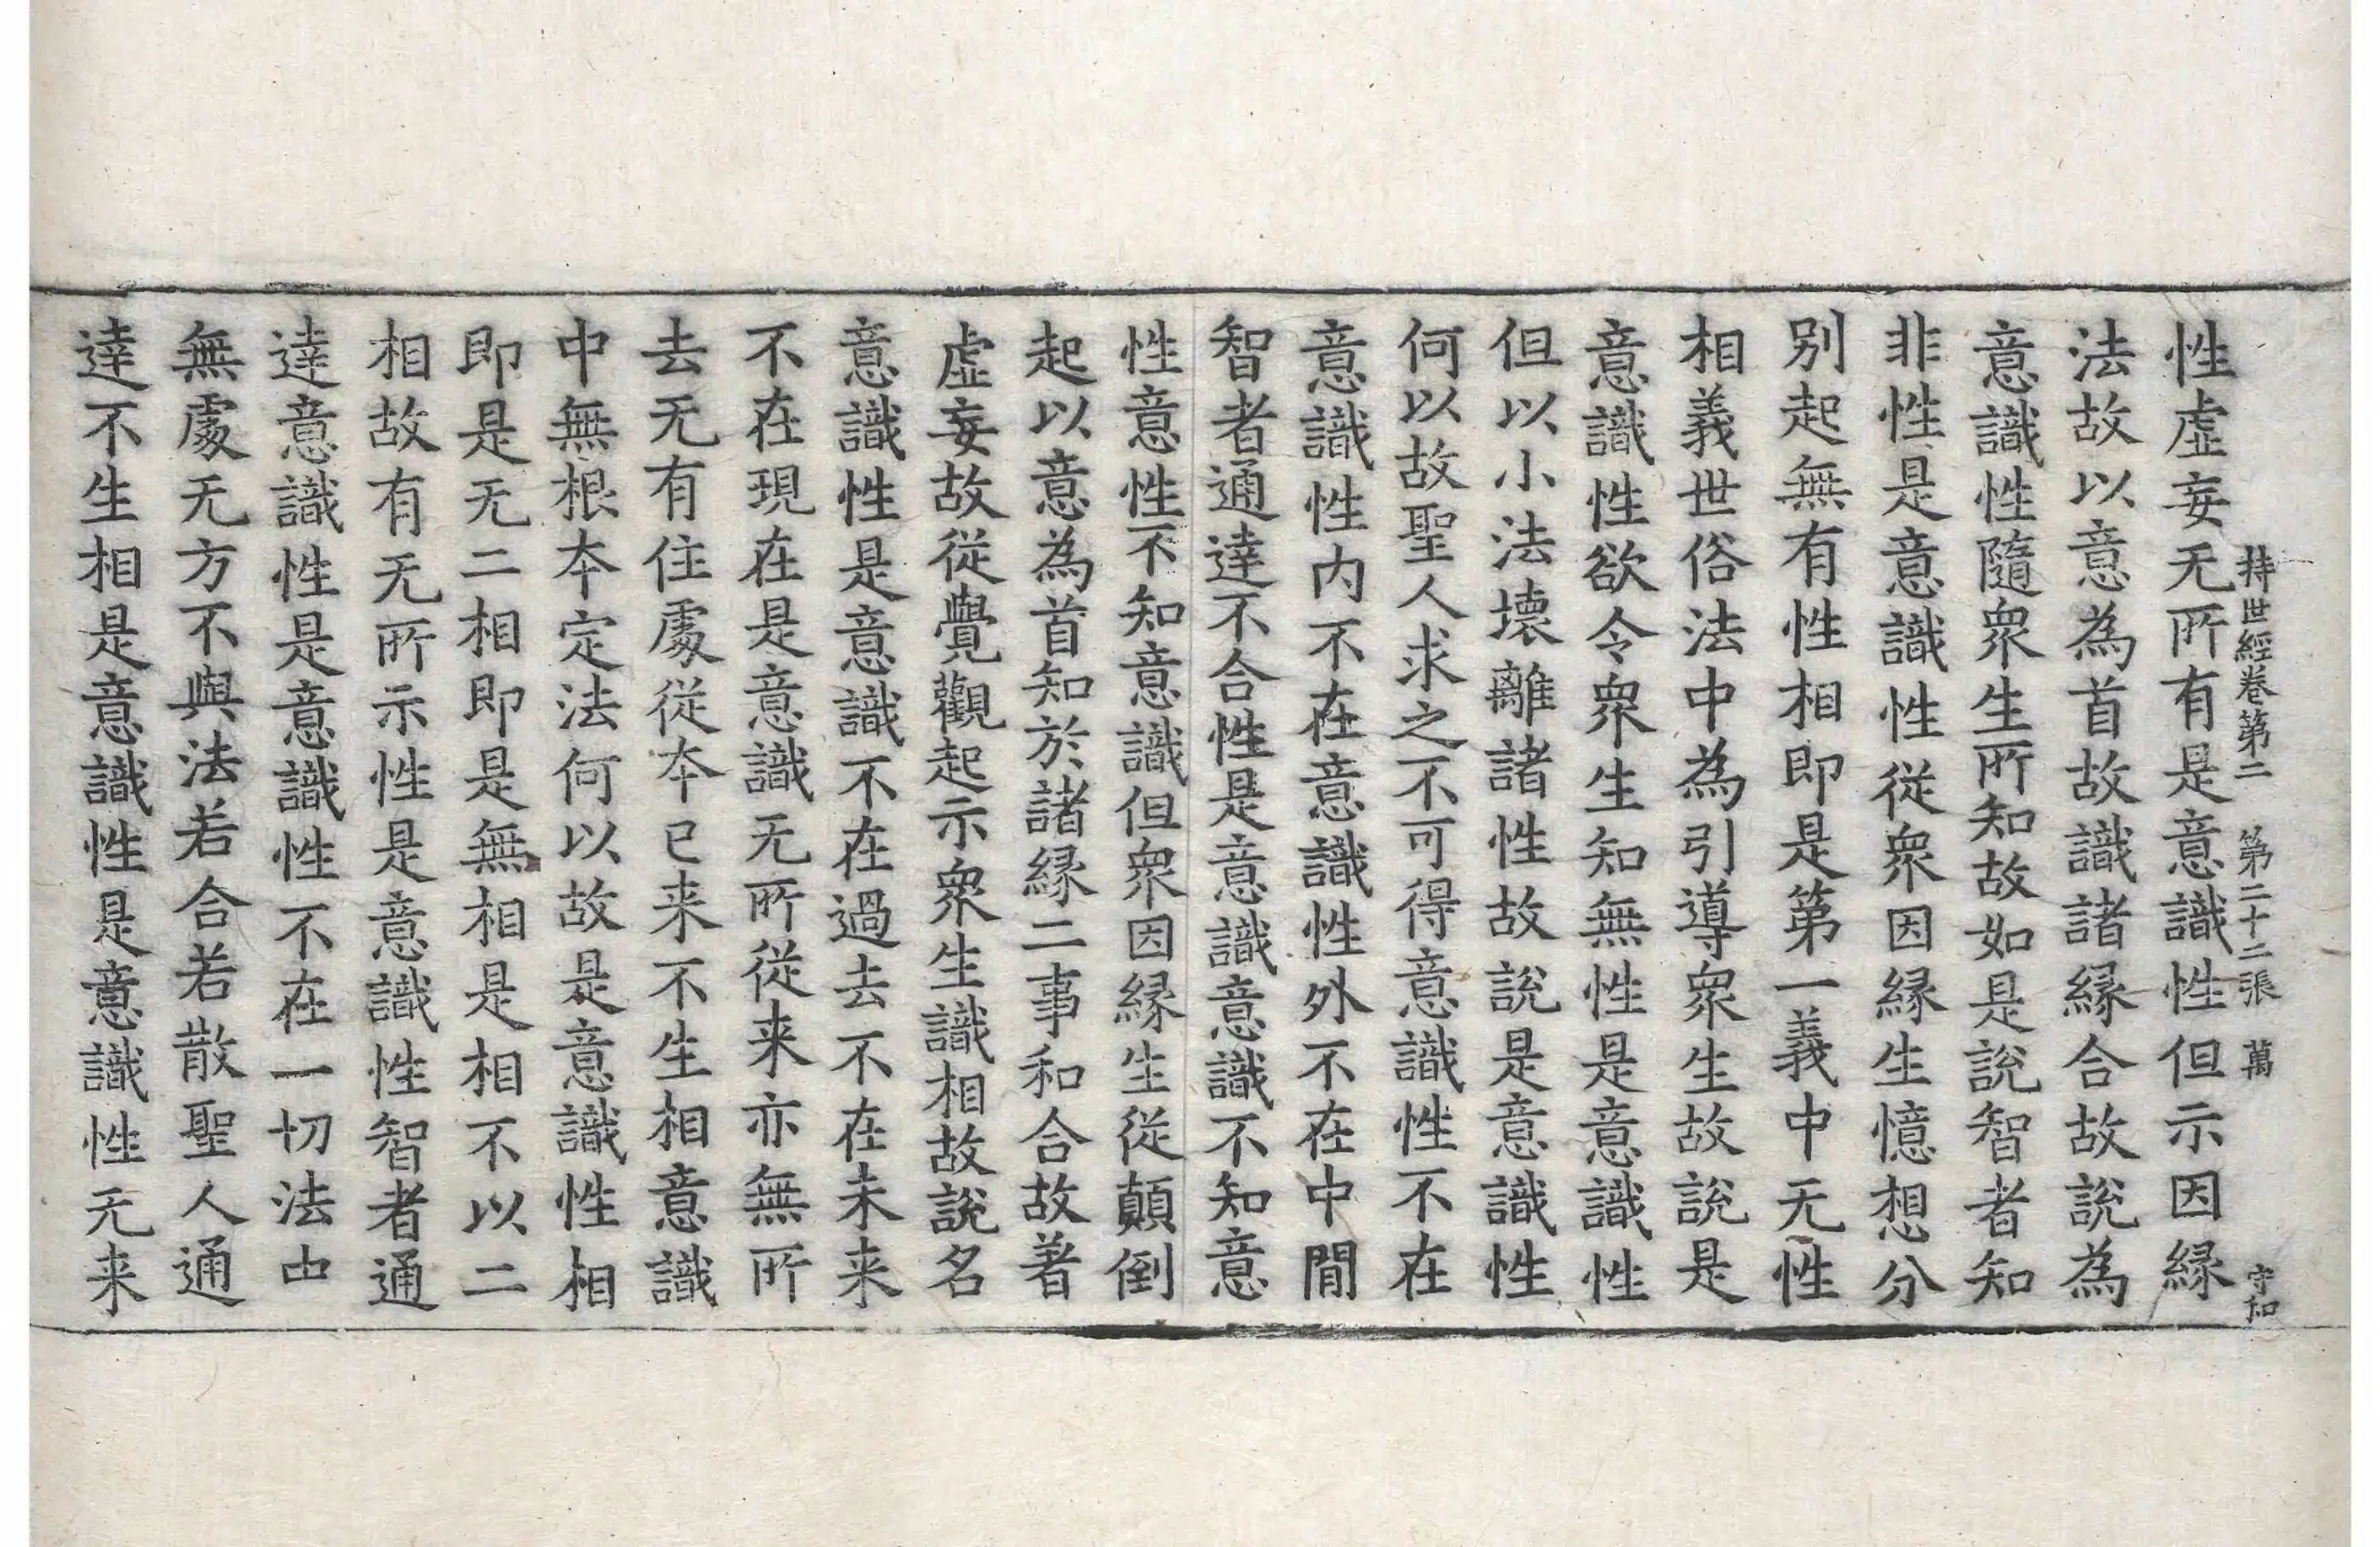 持世經卷第二 第二十二張 萬 守和
性虛妄无所有是意識性但示因緣
法故以意為首故識諸緣合故說為
意識性隨衆生所知故如是說智者知
非性是意識性從衆因緣生憶想分
别起無有性相即是第一義中无性
相義世俗法中為引導衆生故說是
意識性欲令衆生知無性是意識性
但以小法壞離諸性故說是意識性
何以故聖人求之不可得意識性不在
意識性內不在意識性外不在中閒
智者通達不合性是意識意識不知意
性意性不知意識但衆因緣生從顛倒
起以意為首知於諸緣二事和合故著
虛妄故從覺觀起示衆生識相故說名
意識性是意識不在過去不在未来
不在現在是意識无所從来亦無所
去无有住處從夲已来不生相意識
中無根夲定法何以故是意識性相
即是无二相即是無相是相不以二
相故有无所示性是意識性智者通
達意識性是意識性不在一切法由
無處无方不與法若合若散聖人通
達不生相是意識性是意識性无来